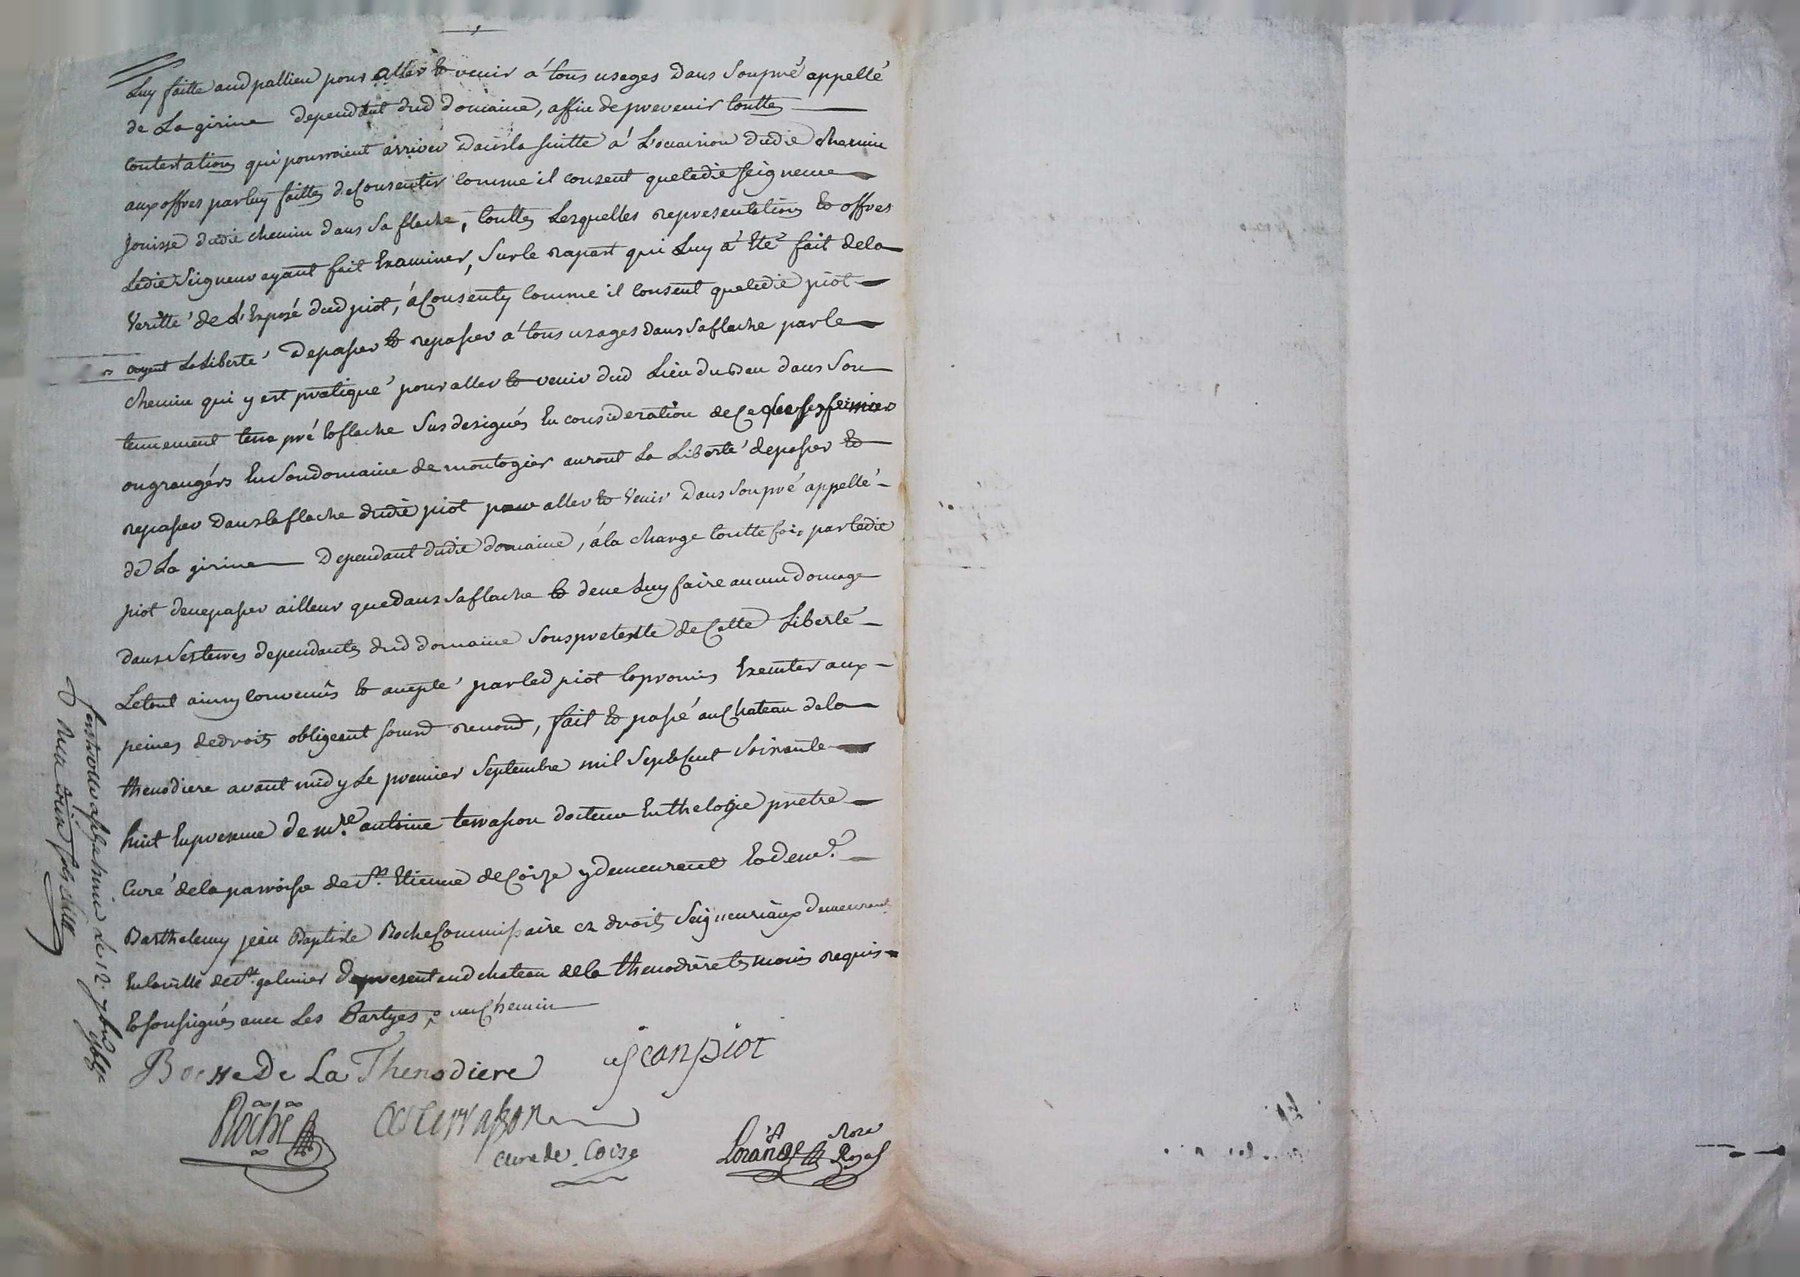 Luy faitte aud pallien pour aller & venir á tous usages Dans Son pré appellé
de La girine dependant dud domaine, affin de prevenir touttes
Contestations qui pourroient arriver Dans la suitte á L'occasion dudit chemin
aux offres par luy faittes de Consentir comme il consent que ledit Seigneur
Jouisse dudit chemin dans Sa flache, touttes Lesquelles representations & offres
Ledit Seigneur ayant fait Examiner, Sur le raport qui Luy á Eté fait de la
Veritté de L'Exposé dud piot, á Consenty Comme il Consent que ledit piot
ayent La Liberté De passer & repasser á tous usages dans Sa flache par le
Chemin qui y est pratiqué pour aller & venir dud Lieu du dans Son
tennement terre pré & flache Sus designés En consideration de Ce que ses fermiers
ou grangérs En Son domaine de montogier auront La Liberté de passer &
repasser Dans la flache dudit piot pour aller & Venir Dans Son pré appellé
de La girine Dependant dudit domaine, á la charge toutte fois par ledit
piot de ne passer ailleur que dans Sa flache & de ne Luy faire aucun domage
dans Ses terres dependantes dud domaine Sous pretexte de Cette Liberté
Le tout ainsy Convenu & accepté par led piot & promis Executer aux
peines de droits obligeant soumd renond, fait & passé au Chateau de la
thenodiere avant midy Le premier Septembre mil Sept Cent Soixante
huit En presence de Mre. antoine terrasson docteur En theologie pretre
Curé de la parroisse de St. Etienne de Coize y demeurant & de me.
Barthelemy jean Baptiste Roche Commissaire ez droits Seigneuriaux demeurant
En la ville de St. galmier De present aud chateau de la thenodiére temoins requis
& Soussignés avec Les Partyes, au Chemin
Boesse De La Thenodiere
Jean piot
Roche
Terrasson
curé de Coise
Nore
Royal
le 12. 7bre